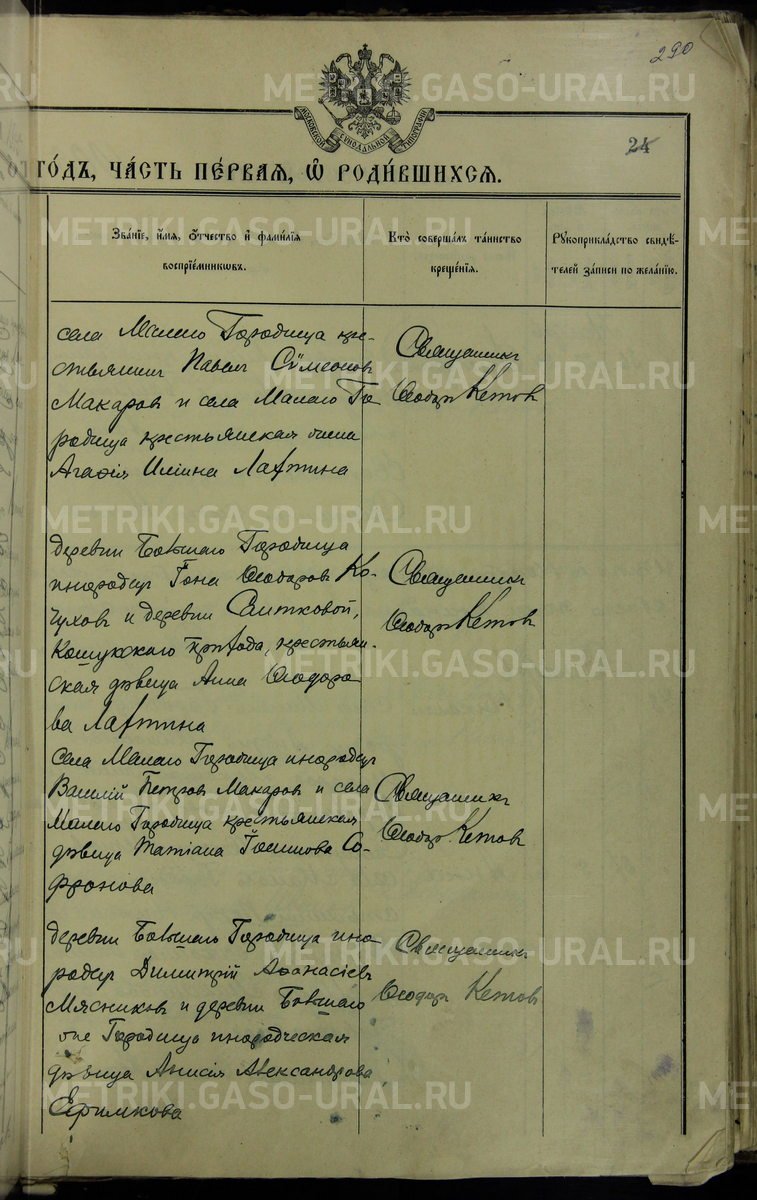 290
МОСКОВСКОЙ СѴНОДАЛЬНОЙ ТИПОГРАФІИ
24
ГО́ДЪ, ЧА́СТЬ ПЕ́РВАЯ, Ѡ҆ РОДИ́ВШИХСЯ.
Зва́нїе, и҆́мя, ѻ҆́тчество и҆ фами́лїя
воспрїе́мникѡвъ.
Кто̀ соверша́лъ та́инство
креще́нїя.
Рꙋкоприкла́дство свидѣ́-
телей за́писи по жела́нїю.
села Малаго Городища кре-
стьянинъ Павелъ Сѵмеоновъ
Макаровъ и села Малаго Го
родища крестьянская жена
Агафія Ильина Лаптина
Священникъ
Ѳеодоръ Кетовъ
деревни Большаго Городища
инородецъ Іона Ѳеодоровъ Ко-
жуховъ и деревни Саитковой,
Кошукскаго прихода, крестьян-
ская дѣвица Анна Ѳеодоро
ва Лаптина
Священникъ
Ѳеодоръ Кетовъ
села Малаго Городища инородецъ
Василій Петровъ Макаровъ и села
Малаго Городища крестьянская
дѣвица Татіана Іосифова Со-
фронова
Священникъ
Ѳеодоръ Кетовъ
деревни Большаго Городища ино
родецъ Димитрій Аѳанасіевъ
Мясниковъ и деревни Большаго
же Городища инородческая
дѣвица Анисія Александрова
Ефимкова
Священникъ
Ѳеодоръ Кетовъ
METRIKI.GASO-URAL.RU